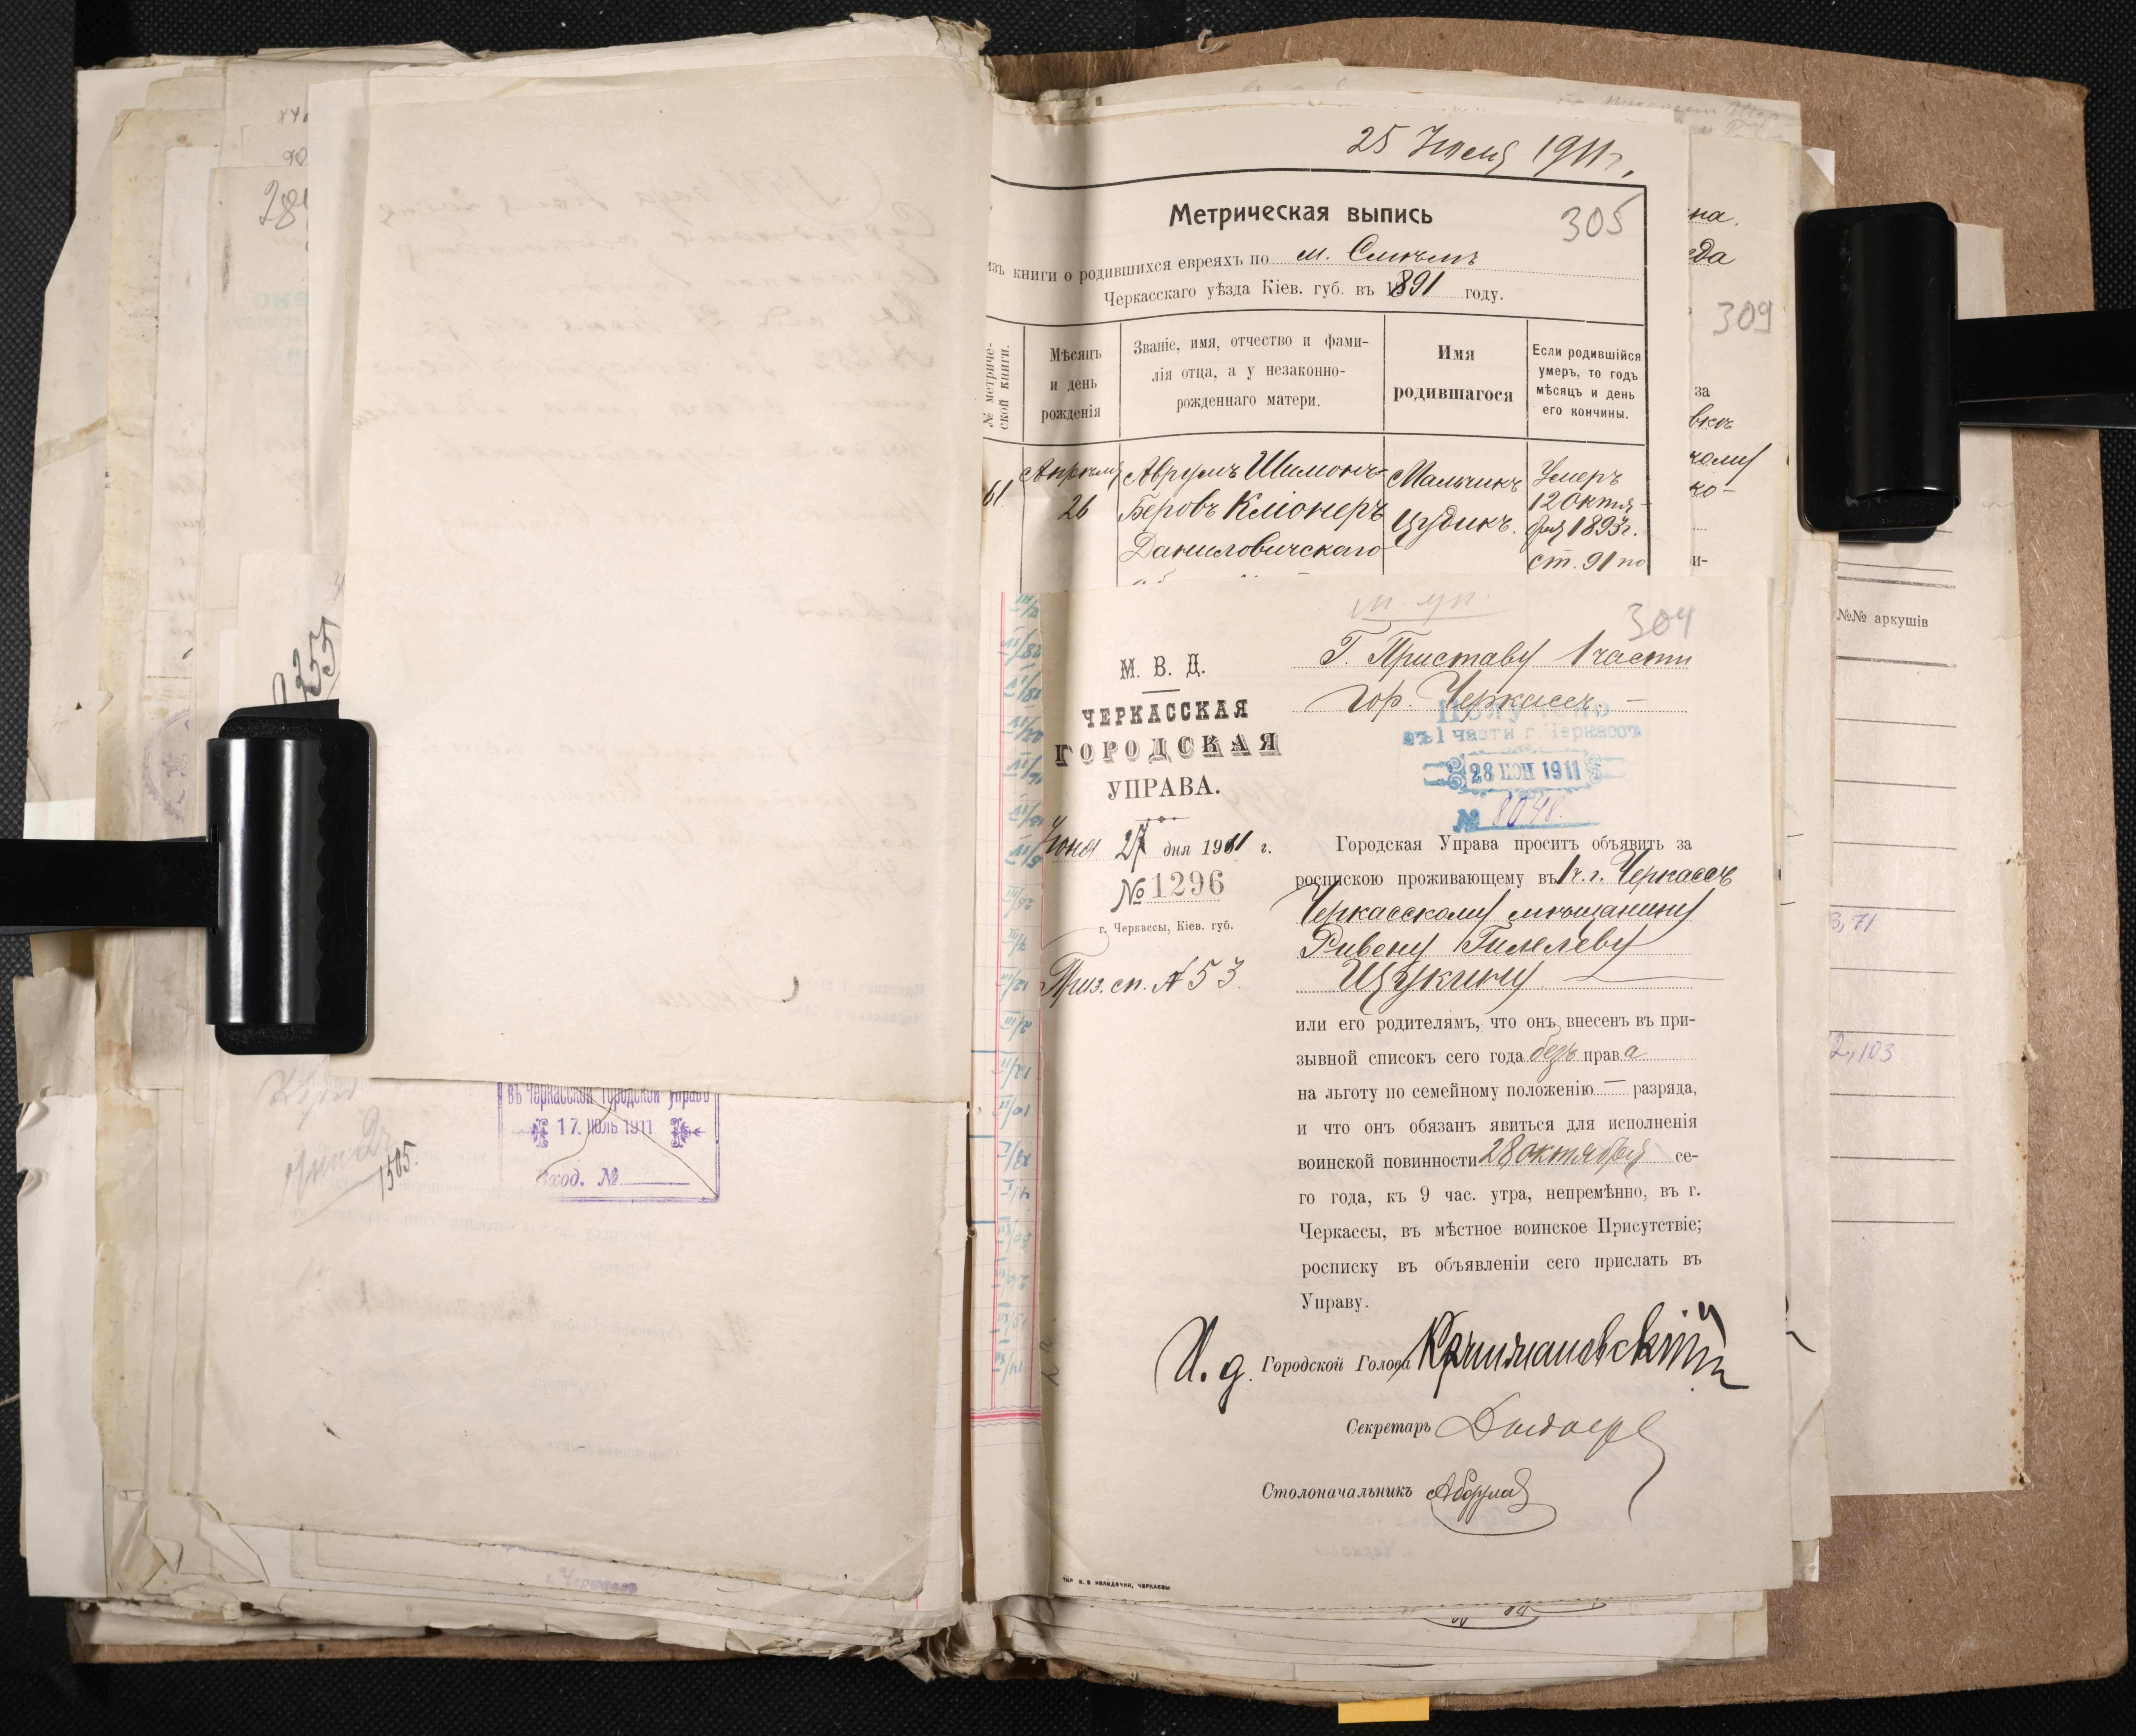 25 Июля 1911 г.
305
Метрическая выпись
изъ книги о родившихся евреяхъ по м. Смѣлѣ
Черкасскаго уѣзда Кіев. губ. въ 1891 году.
№ метриче-
ской книги.
Мѣсяцъ
и день
рожденія
Званіе, имя, отчество и фами-
лія отца, а у незаконно-
рожденнаго матери.
Имя
родившагося
Если родившійся
умеръ, то годъ
мѣсяцъ и день
его кончины.
61
Апрѣля
26
Аврумъ Шимонъ-
Беровъ Кліонеръ
Даниловичскаго
Мальчикъ
Иудикъ.
Умеръ
12 Октя-
бря 1893 г.
ст. 91 по
на.
309
за
№№ аркушів
304
М. В. Д.
ЧЕРКАССКАЯ
ГОРОДСКАЯ
УПРАВА.
Іюня 27 дня 1911 г.
№ 1296
г. Черкассы, Кіев. губ.
Приз. сп. № 53
Г. Приставу 1 части
гор. Черкассъ
Получено
въ 1 части г. Черкассъ
28 ІЮН 1911
№ 8048.
Городская Управа проситъ объявить за
роспискою проживающему въ 1 ч. г. Черкассъ
Черкасскому мѣщанину
Рувену Гилелеву
Щукину
или его родителямъ, что онъ внесенъ въ при-
зывной списокъ сего года безъ права
на льготу по семейному положенію — разряда,
и что онъ обязанъ явиться для исполненія
воинской повинности 28 октября се-
го года, къ 9 час. утра, непремѣнно, въ г.
Черкассы, въ мѣстное воинское Присутствіе;
росписку въ объявленіи сего прислать въ
Управу.
И. д. Городской Голова
Секретарь
Столоначальникъ
въ Черкасской Городской Управѣ
17. ІЮЛЬ 1911
Вход. №
1505.
9355
3,71
2,103